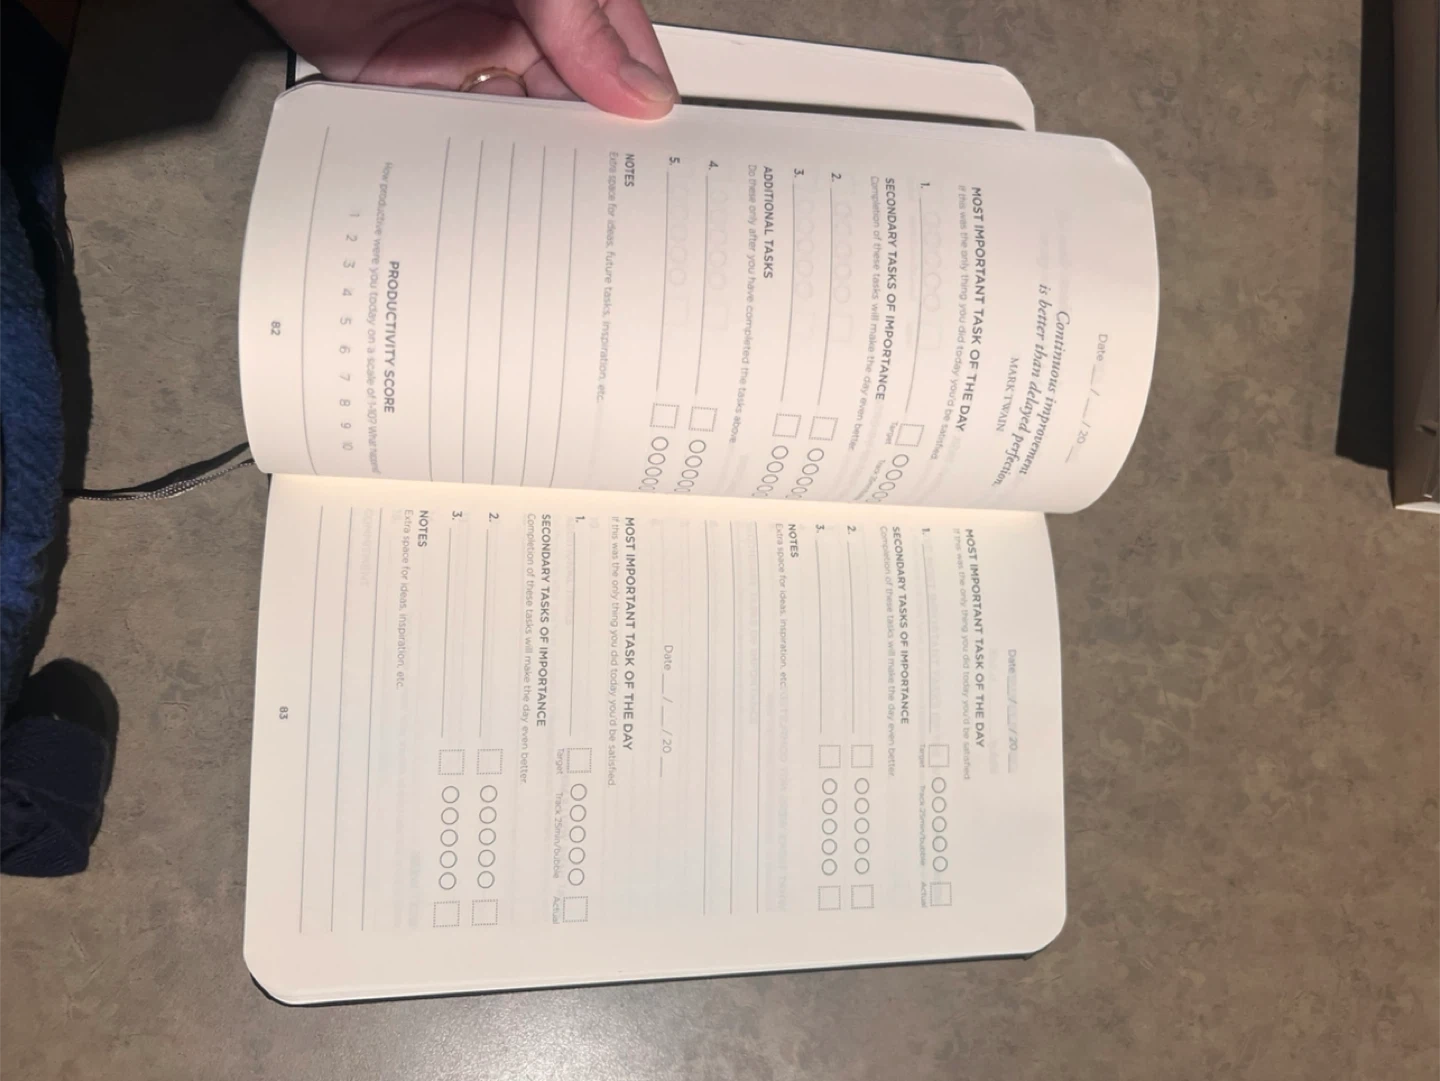 Date / / 20
Continuous improvement
is better than delayed perfection.
MARK TWAIN
MOST IMPORTANT TASK OF THE DAY
If this was the only thing you did today you'd be satisfied.
1.
Target
SECONDARY TASKS OF IMPORTANCE
Completion of these tasks will make the day even better.
2.
3.
ADDITIONAL TASKS
Do these only after you have completed the tasks above.
4.
5.
NOTES
Extra space for ideas, future tasks, inspiration, etc.
PRODUCTIVITY SCORE
How productive were you today on a scale of 1-10? What
1 2 3 4 5 6 7 8 9 10
82
Date / / 20
MOST IMPORTANT TASK OF THE DAY
If this was the only thing you did today you'd be satisfied.
1.
Target Track 25min/bubble Actual
SECONDARY TASKS OF IMPORTANCE
Completion of these tasks will make the day even better.
2.
3.
NOTES
Extra space for ideas, inspiration, etc.
Date __ / __ / 20 __
MOST IMPORTANT TASK OF THE DAY
If this was the only thing you did today you'd be satisfied.
1.
Target Track 25min/bubble Actual
SECONDARY TASKS OF IMPORTANCE
Completion of these tasks will make the day even better.
2.
3.
NOTES
Extra space for ideas, inspiration, etc.
83